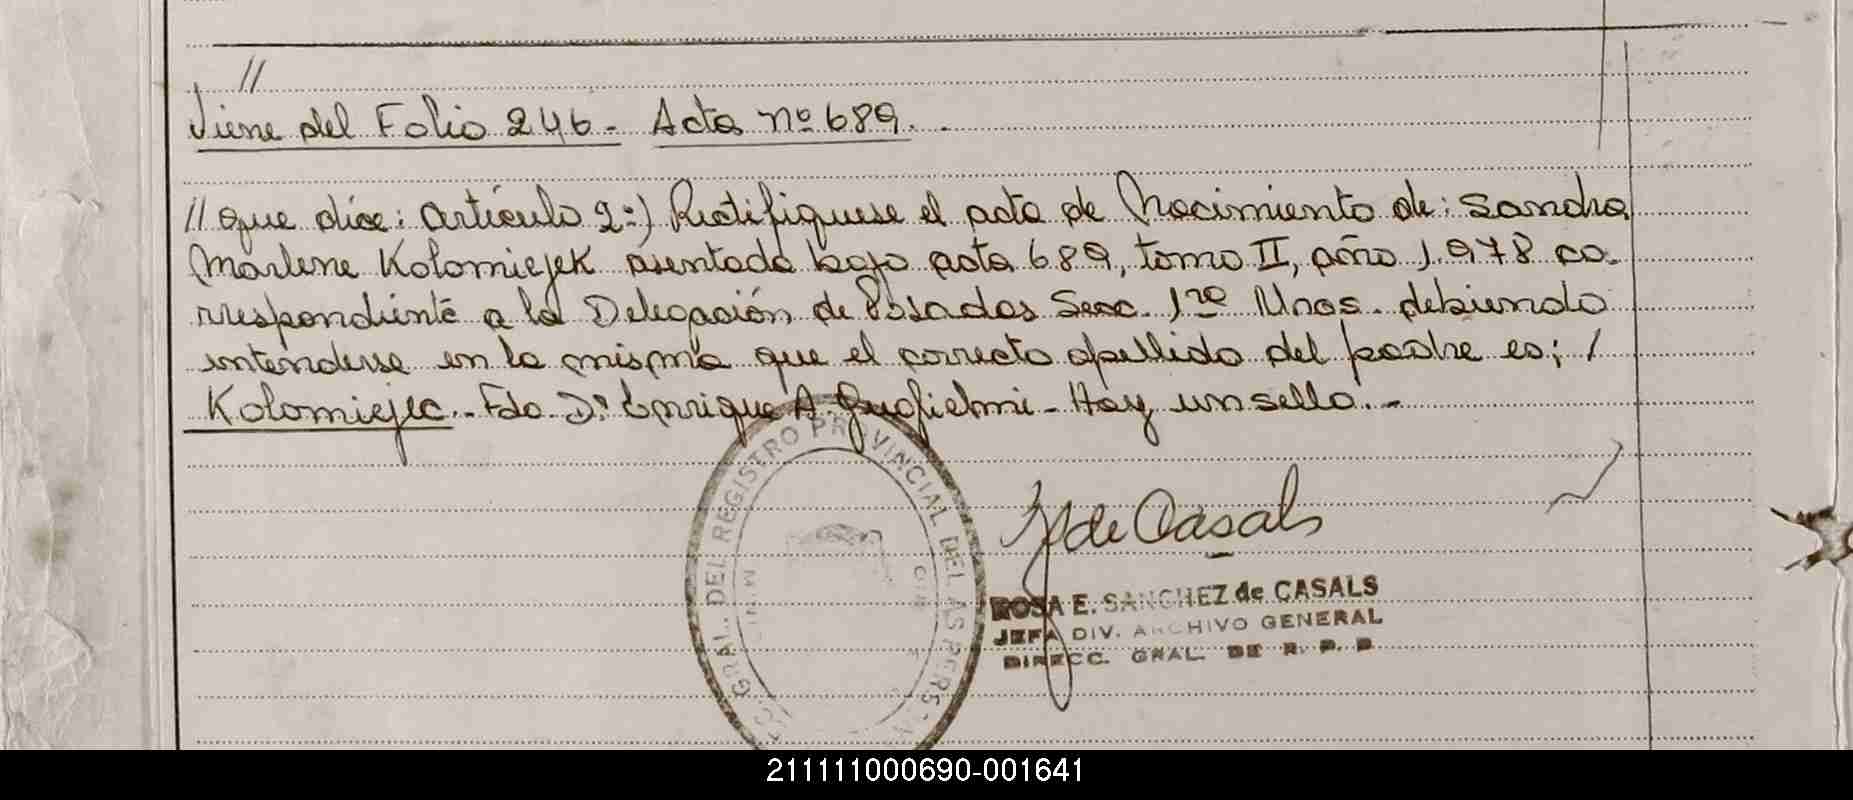 //
Viene del Folio 246.- Acta nº 689.-
// que dice: Artículo 2º) Rectifiquese el acta de Nacimiento de: Sandra
Marlene Kolomiejek asentada bajo acta 689, tomo II, año 1.978 co-
rrespondiente a la Delegación de Posadas Secc. 1ra Mnes. debiendo
entenderse en la misma que el correcto apellido del padre es; /
Kolomiejec.- Fdo. Dr. Enrique A. Guglielmi - Hay un sello.-
de Casals
ROSA E. SANCHEZ de CASALS
JEFA DIV. ARCHIVO GENERAL
DIRECC. GRAL. DE R. P. P.
GRAL. DEL REGISTRO PROVINCIAL DE LAS PERS.
211111000690-001641